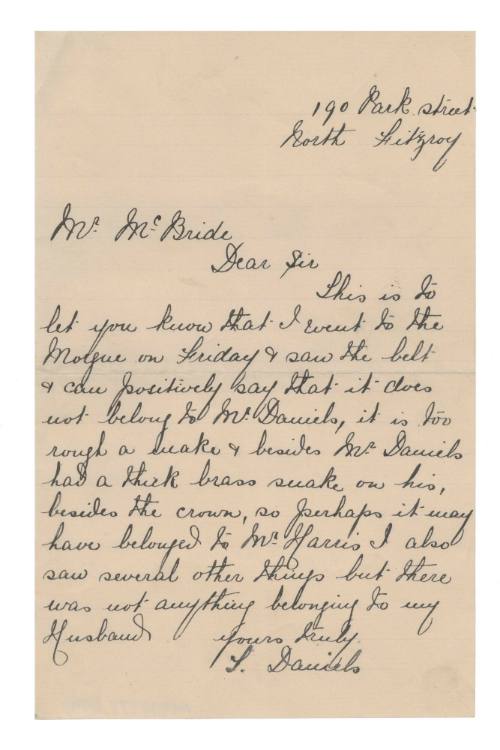 190 Park street
North Fitzroy
Mr. McBride
Dear Sir
This is to
let you know that I went to the
Morgue on Friday & saw the belt
& can positively say that it does
not belong to Mr. Daniels, it is too
rough a make & besides Mr. Daniels
had a thick brass snake on his,
besides the crown, so perhaps it may
have belonged to Mr. Harris I also
saw several other things but there
was not anything belonging to my
Husband yours truly.
S. Daniels